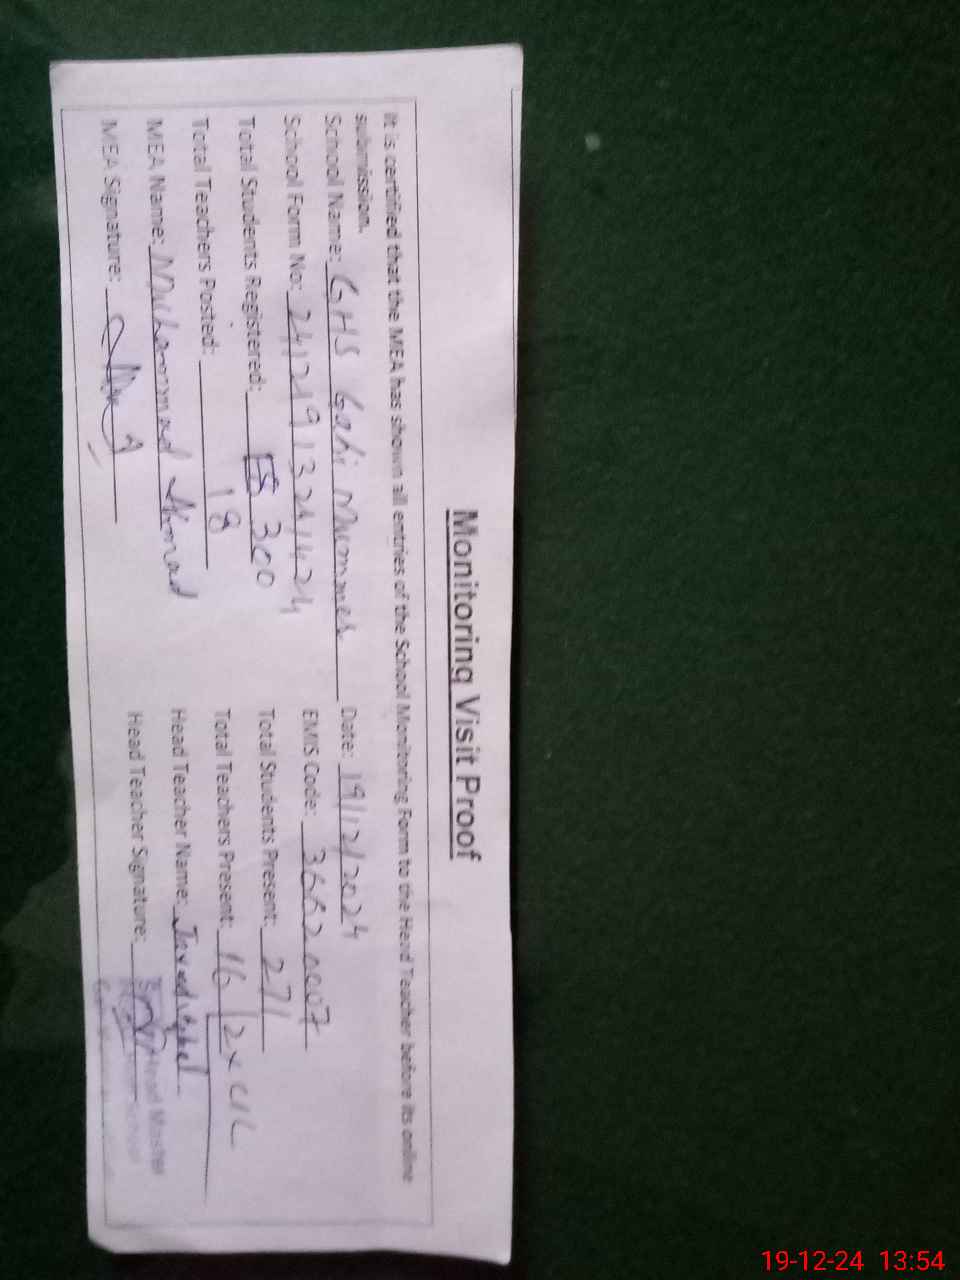 Monitoring Visit Proof
It is certified that the MEA has shown all entries of the School Monitoring Form to the Head Teacher before its online
submission.
School Name: GHS Gahi Mummar Date: 19/12/2024
School Form No: 24121913241424 EMIS Code: 36620007
Total Students Registered: 300 Total Students Present: 271
Total Teachers Posted: 18 Total Teachers Present: 16 2x C/L
MEA Name: Muhammad Ahmad Head Teacher Name: Javed Iqbal
MEA Signature: Head Teacher Signature:
Head Master
School
19-12-24 13:54